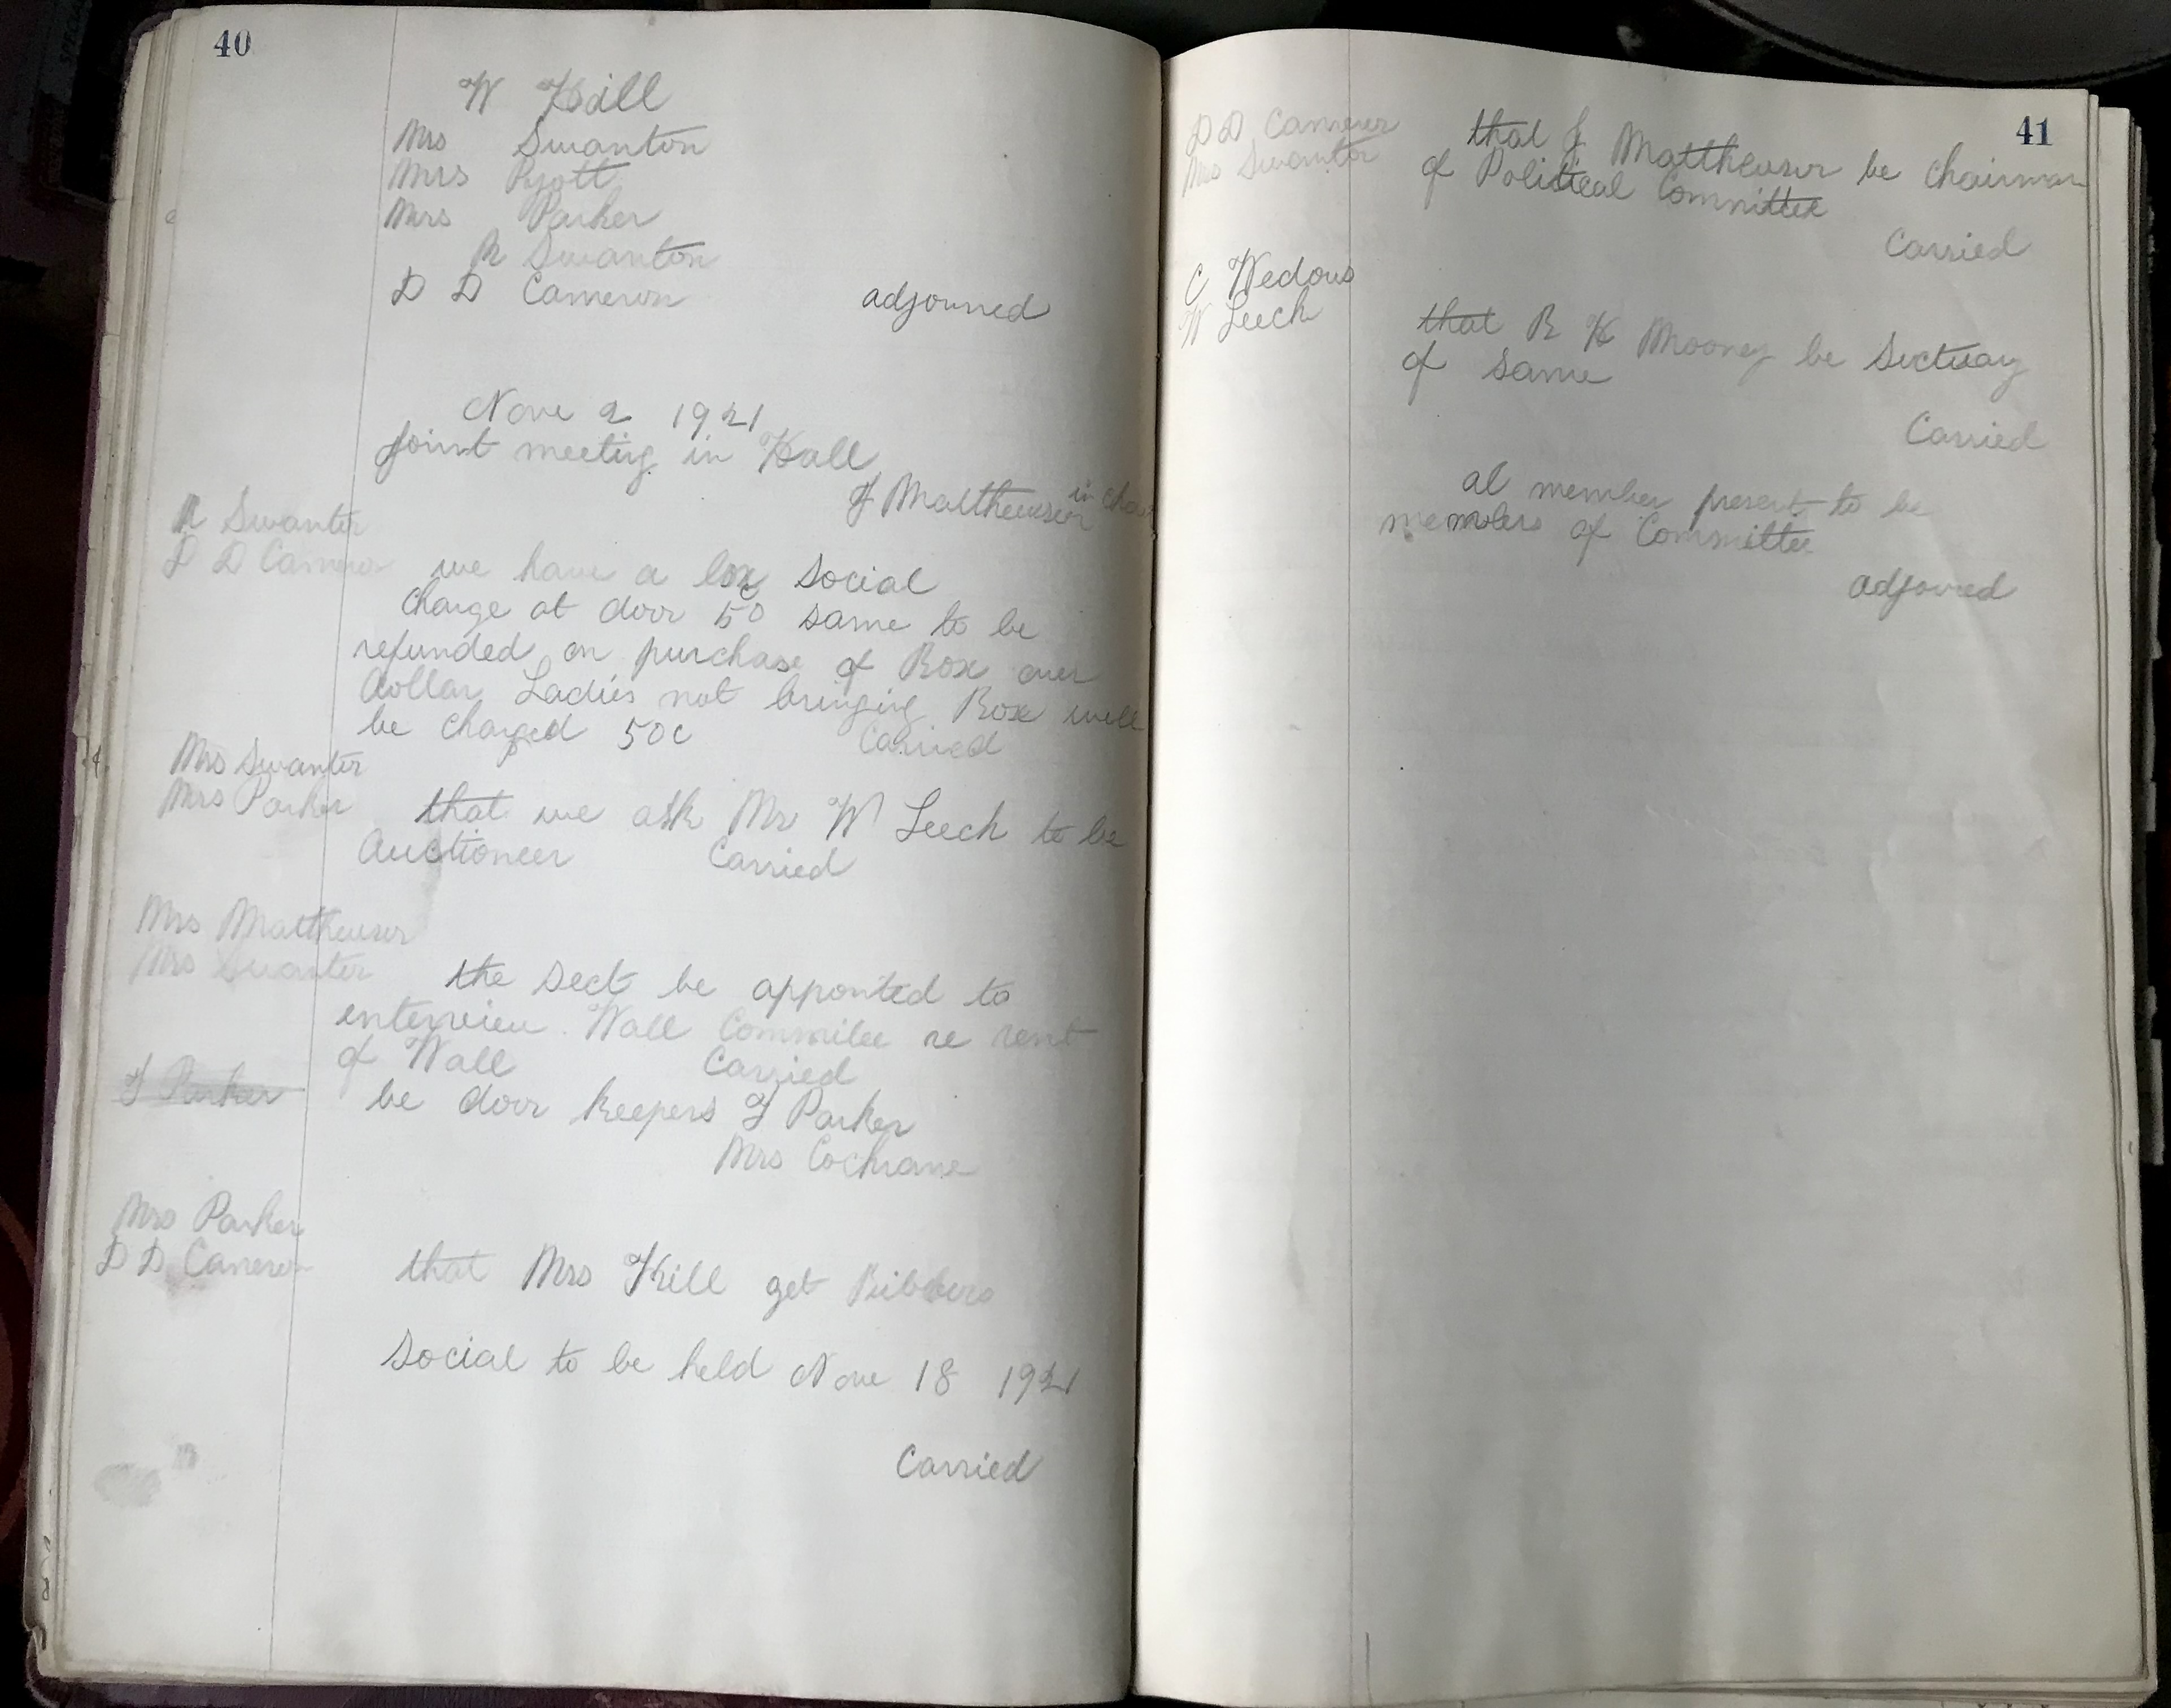 40
W Hill
Mrs Swanton
Mrs Pyott
Mrs Parker
R Swanton
D D Cameron adjourned
Nove 2 1921
Joint meeting in Hall
J Mattheuson in chair
R Swanton
D D Cameron we have a box social
charge at door 50 same to be
refunded on purchase of Box over
dollar Ladies not bringing Box will
be charged 50c Carried
Mrs Swanton
Mrs Parker that we ask Mr W Leech to be
Auctioneer Carried
Mrs Mattheuson
Mrs Swanton the sect be apponted to
enterview Hall Commitee re rent
of Hall Carried
F Parker be door keepers F Parker
Mrs Cochrane
Mrs Parker
D D Cameron that Mrs Hill get
Social to be held Nove 18 1921
Carried
41
D D Cameron that J Mattheuson be chairman
Mrs Swanton of Political Committee
Carried
C Wedous
W Leech that R H Mooney be Sectuary
of same
Carried
al member present to be
members of Committee
adjoured